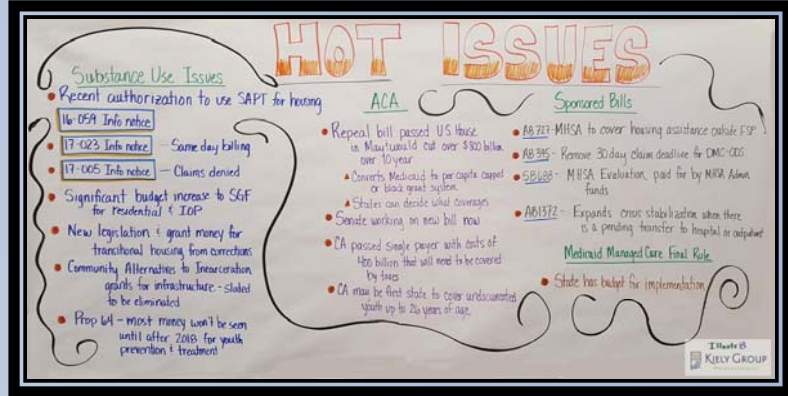 HOT ISSUES
Substance Use Issues
Recent authorization to use SAPT for housing
16-059 Info notice
17-023 Info notice - Same day billing
17-005 Info notice - Claims denied
Significant budget increase to SGF
for residential & IOP
New legislation & grant money for
transitional housing from corrections
Community Alternatives to Incarceration
grants for infrastructure - slated
to be eliminated
Prop 64 - most money won't be seen
until after 2018 for youth
prevention & treatment
ACA
Repeal bill passed US House
in May, would cut over $800 billion
over 10 year
Converts Medicaid to per capita capped
or block grant system
States can decide what coverages
Senate working on new bill now
CA passed single payer with costs of
400 billion that will need to be covered
by taxes
CA may be first state to cover undocumented
youth up to 26 years of age.
Sponsored Bills
AB727 - MHSA to cover housing assistance outside FSP
AB395 - Remove 30 day claim deadline for DMC-ODS
SB688 - MHSA Evaluation, paid for by MHSA Admin
funds
AB1372 - Expands crisis stabilization when there
is a pending transfer to hospital or outpatient
Medicaid Managed Care Final Rule
State has budget for implementation
KIELY GROUP